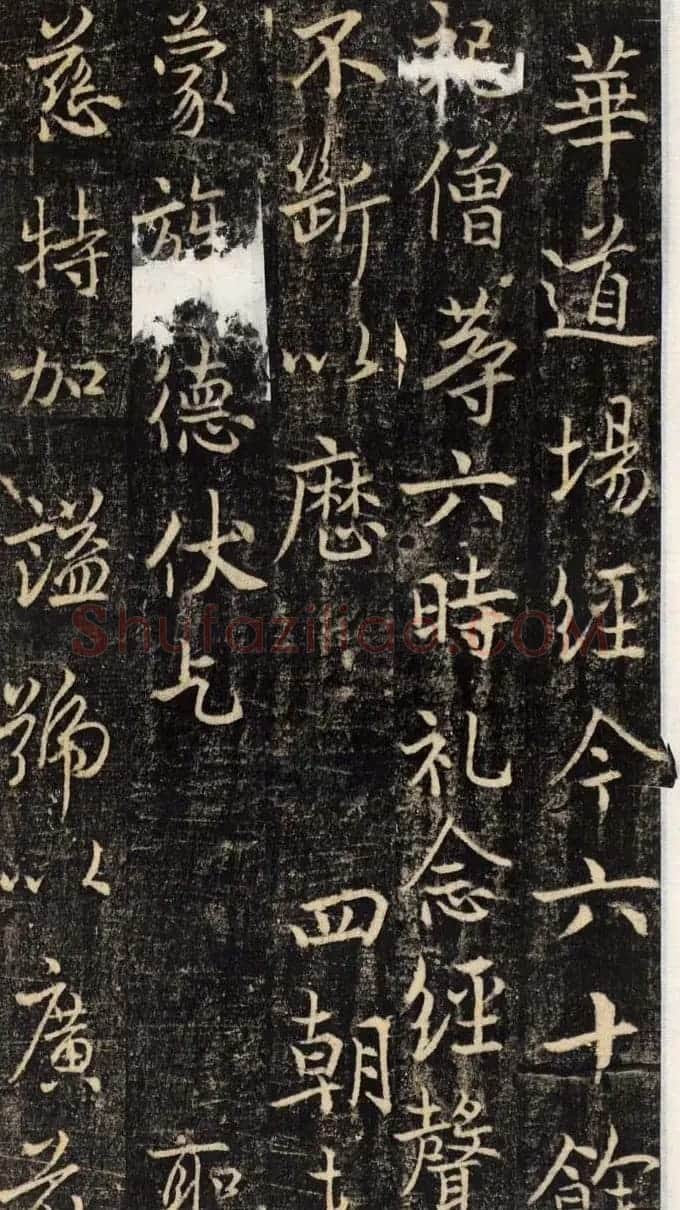 華道場經今六十餘
祀僧等六時礼念經聲
不斷以歷四朝
蒙旌德伏乞聖
慈特加謚號以廣
Shufaziliao.COM